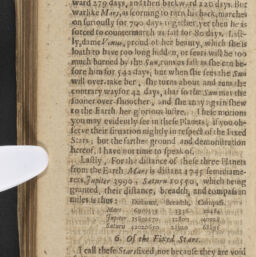 ward 279 days, and then backward 120 days. But
warlike Mars, scorning to turn his back, marches
on furiously for 790 days together, yet then he is
forced to countermarch as fast for 80 days. Last-
ly, dame Venus, proud of her beauty, which she is
loath to have too long hidden, or fears will be too
much burned by the Sun, runs as fast as she can be-
fore him for 542 days; but when she sees the Sun
will over-take her, she turns about and runs the
contrary way for 42 days, that so the Sun may the
sooner over-shoot her, and she may again shew
to the Earth her glorious lustre. These motions
you may evidently see in these Planets, if you ob-
serve their situation nightly in respect of the Fixed
Stars; but the farther ground and demonstration
hereof, I have not time to speak of.
Lastly, For the distance of these three Planets
from the Earth Mars is distant 1745 semediame-
ters, Jupiter 3990, Saturn 10550, which being
granted, their distance, breadth, and compass in
miles is thus: Distance, Breadth, Compass.
Mars
Jupiter
Saturn
6. Of the Fixed Stars.
I call these Stars fixed, not because they are void